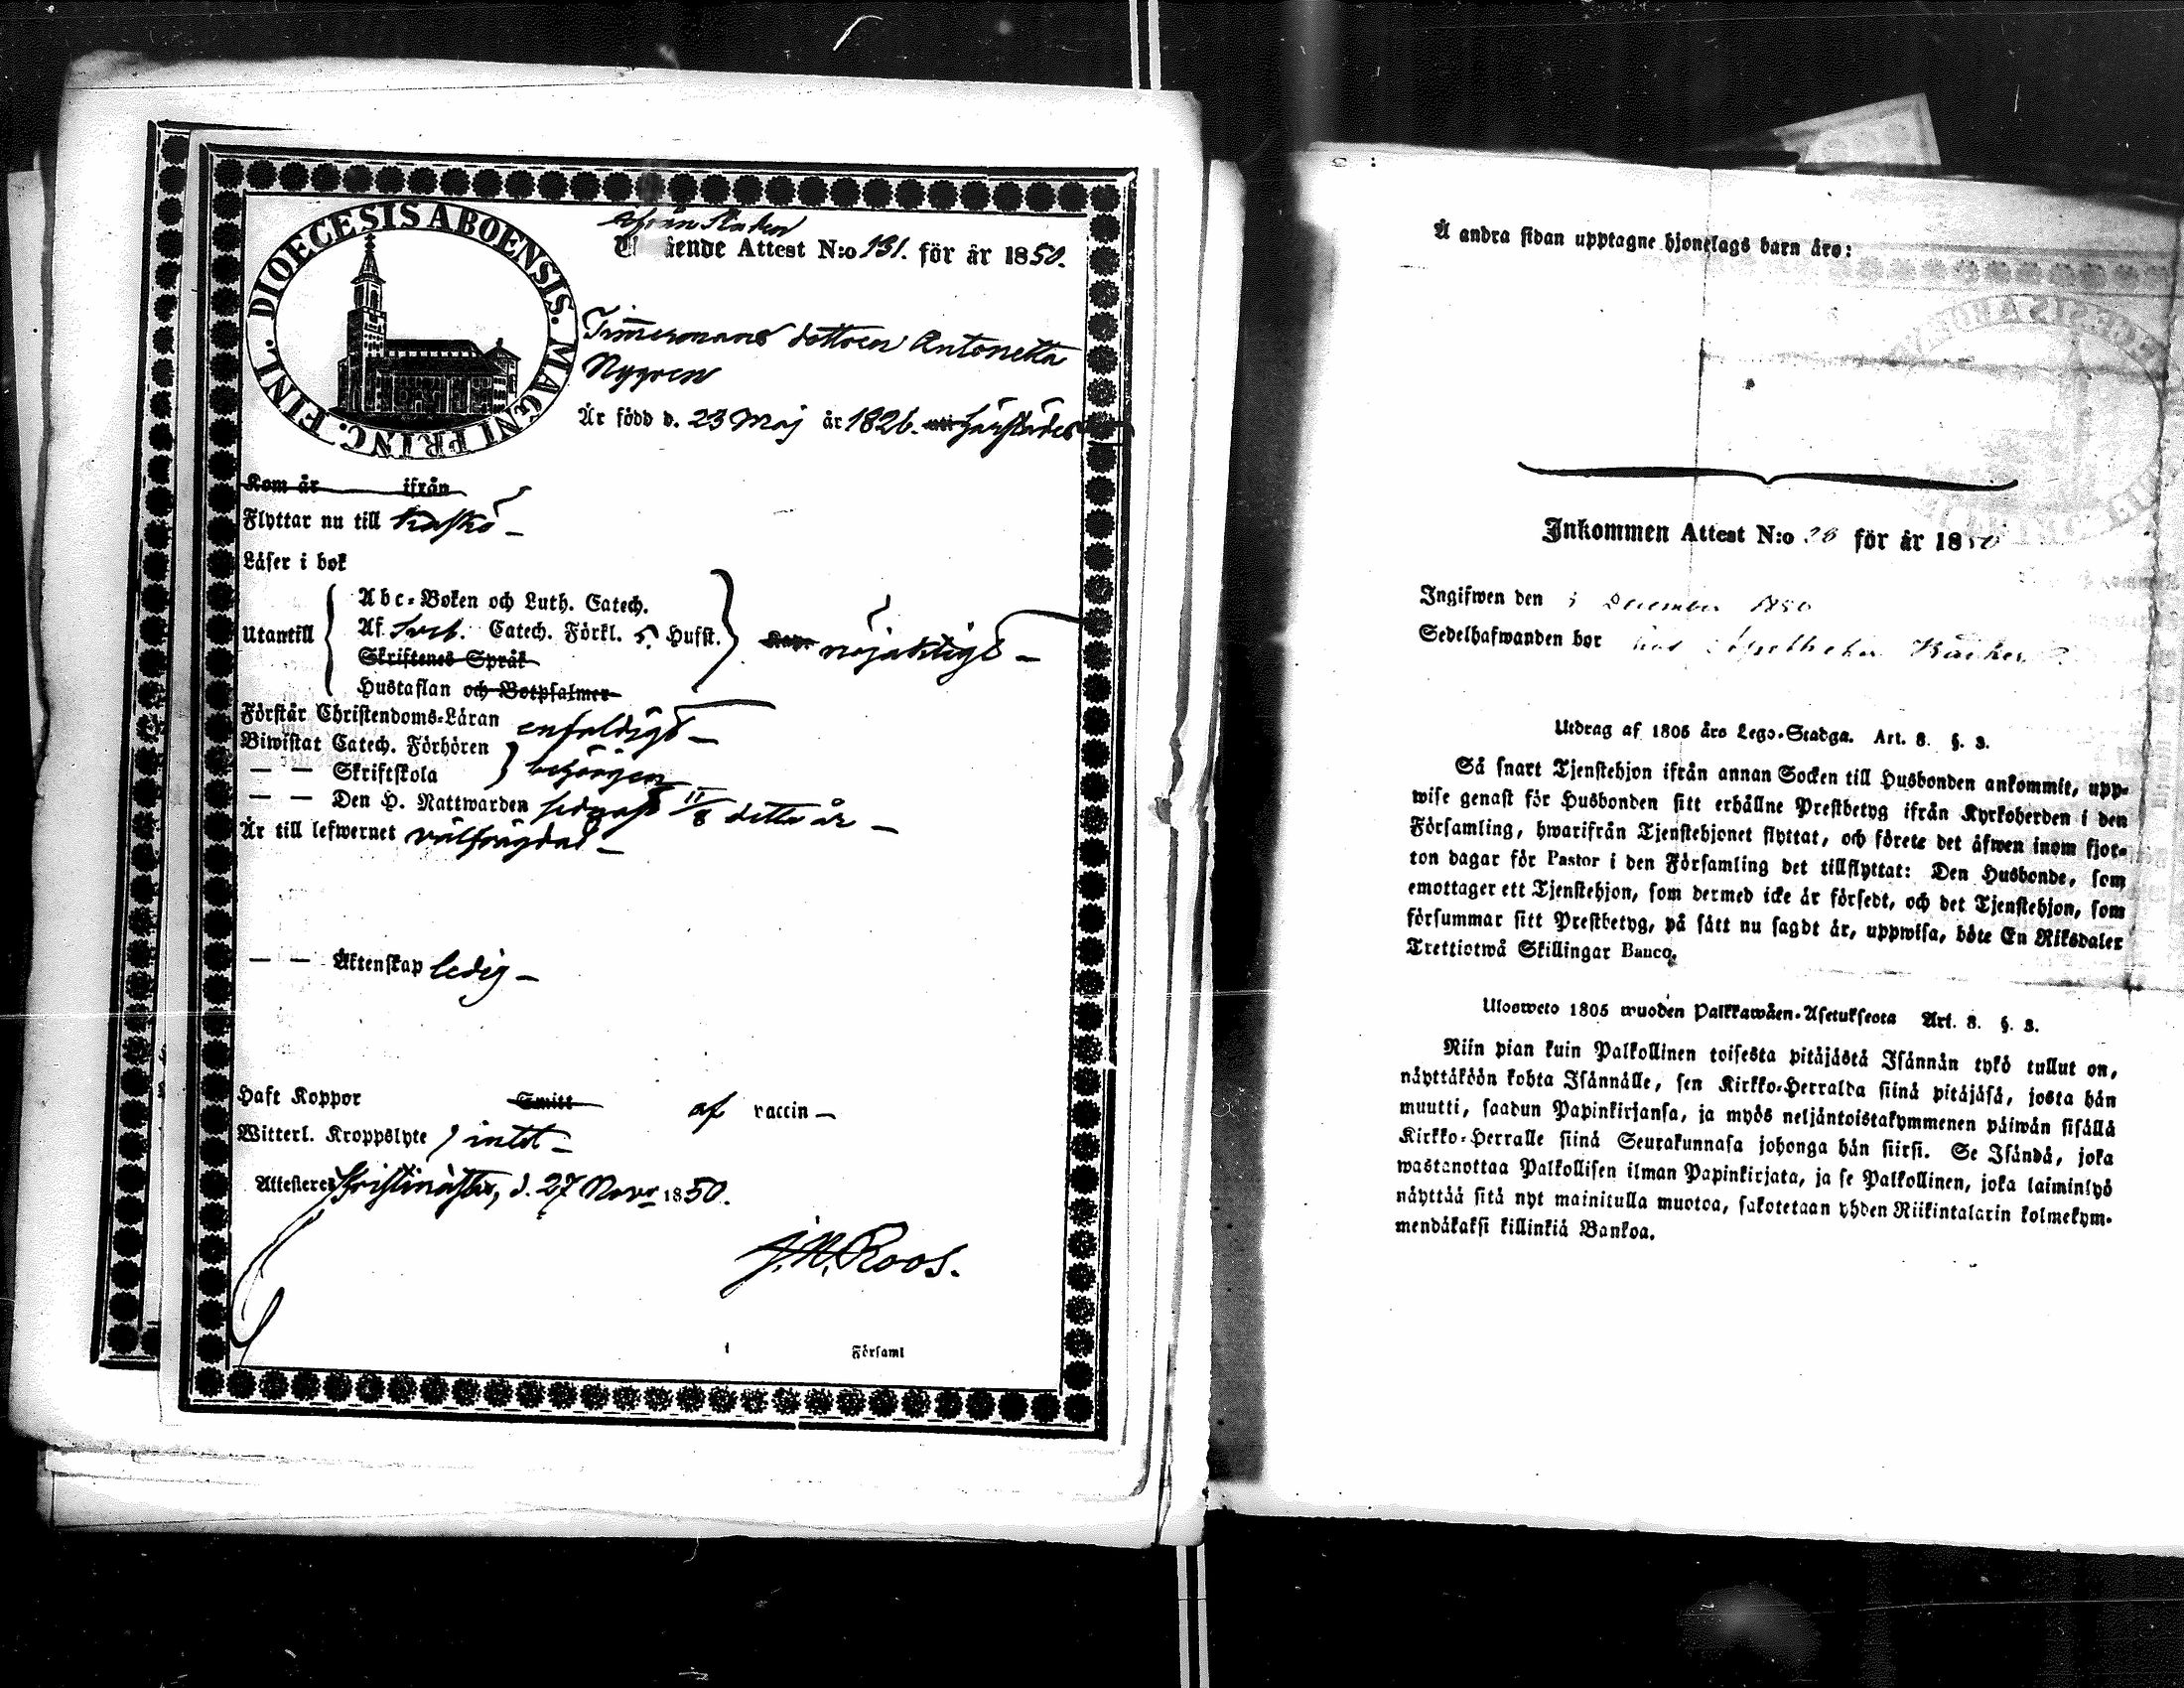 DIOECESIS ABOENSIS. MAGNI PRINC. FINL.
ifrån Staden
U ående Attest N:o 131. för år 1850.
Timmermans dottren Antonetta
Nygren
Är född d. 23 Maj år 1826. uti härstädes
Kom år ifrån
Flyttar nu till Kaskö –
Läser i bok
Utantill
Abc-Boken och Luth. Catech.
Af Sveb. Catech. Förkl. 5 Hufst.
Skriftenes Språk
Hustaflan och Botpsalmer
nöjaktigt –
Förstår Christendoms-Läran enfaldigt –
Biwistat Catech. Förhören
— — Skriftskola
behörigen
— — Den H. Nattwarden sednast 11/8 detta år –
Är till lefwernet välfrägdad –
— — Äktenskap ledig –
Haft Koppor Smitt af vaccin –
Witterl. Kroppslyte intet –
Attesteras Kristinæstad, d. 27 Novr 1850.
J. N. Roos.
i Församl
Å andra sidan upptagne hjonelags barn äro:
Inkommen Attest N:o 26 för år 1850
Ingifwen den 3 December 1850
Sedelhafwanden bor hos Apothekar Bäcker
Utdrag af 1805 års Lego-Stadga. Art. 8. §. 3.
Så snart Tjenstehjon ifrån annan Socken till Husbonden ankommit, upp-
wise genast för Husbonden sitt erhållne Prestbetyg ifrån Kyrkoherden i den
Församling, hwarifrån Tjenstehjonet flyttat, och förete det äfwen inom fjor-
ton dagar för Pastor i den Församling det tillflyttat: Den Husbonde, som
emottager ett Tjenstehjon, som dermed icke är försedt, och det Tjenstehjon, som
försummar sitt Prestbetyg, på sätt nu sagdt är, uppwisa, böte En Riksdaler
Trettiotwå Skillingar Banco.
Ulosweto 1805 wuoden Palkkawäen-Asetuksesta Art. 8. §. 3.
Niin pian kuin Palkollinen toisesta pitäjästä Isännän tykö tullut on,
näyttäköön kohta Isännälle, sen Kirkko-Herralda siinä pitäjäsä, josta hän
muutti, saadun Papinkirjansa, ja myös neljäntoistakymmenen päiwän sisällä
Kirkko-Herralle siinä Seurakunnasa johonga hän siirsi. Se Isändä, joka
wastanottaa Palkollisen ilman Papinkirjata, ja se Palkollinen, joka laiminlyö
näyttää sitä nyt mainitulla muotoa, sakotetaan yhden Riikintalarin kolmekym-
mendäkaksi killinkiä Bankoa.